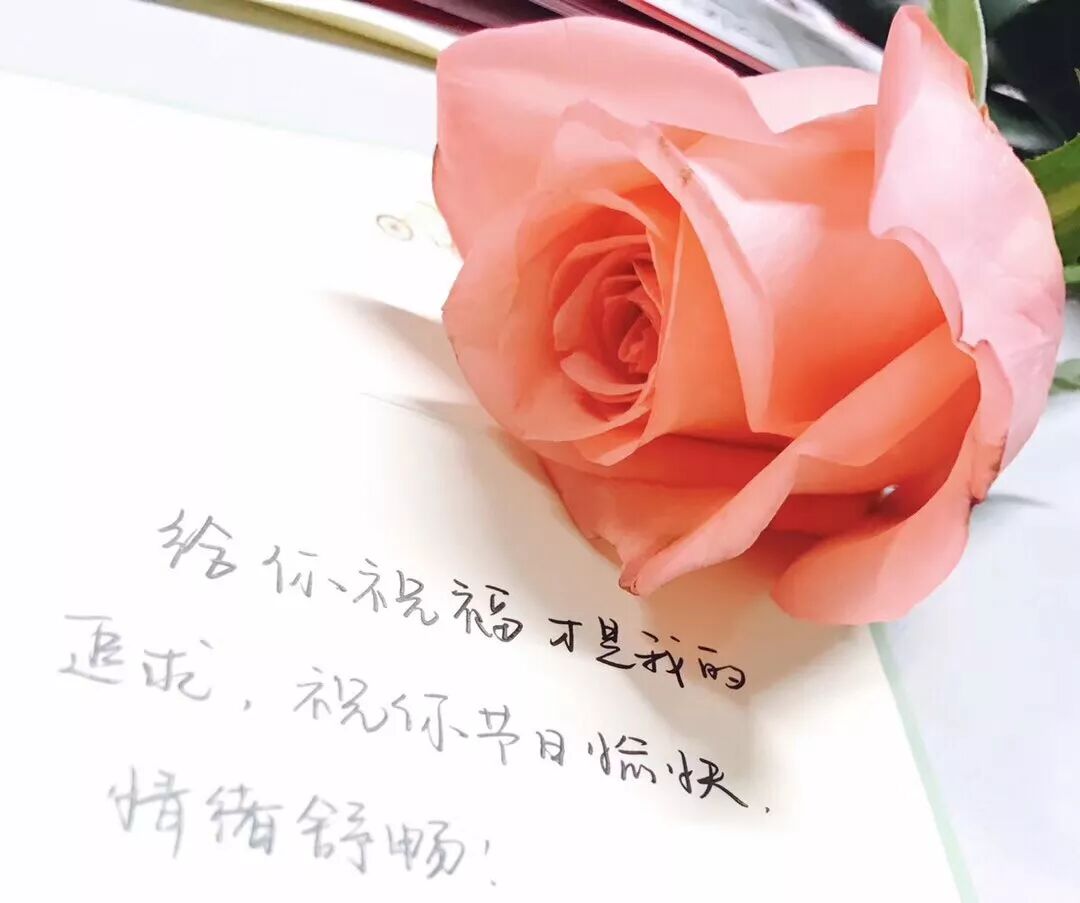 给你祝福才是我的
追求，祝你节日愉快，
情绪舒畅！